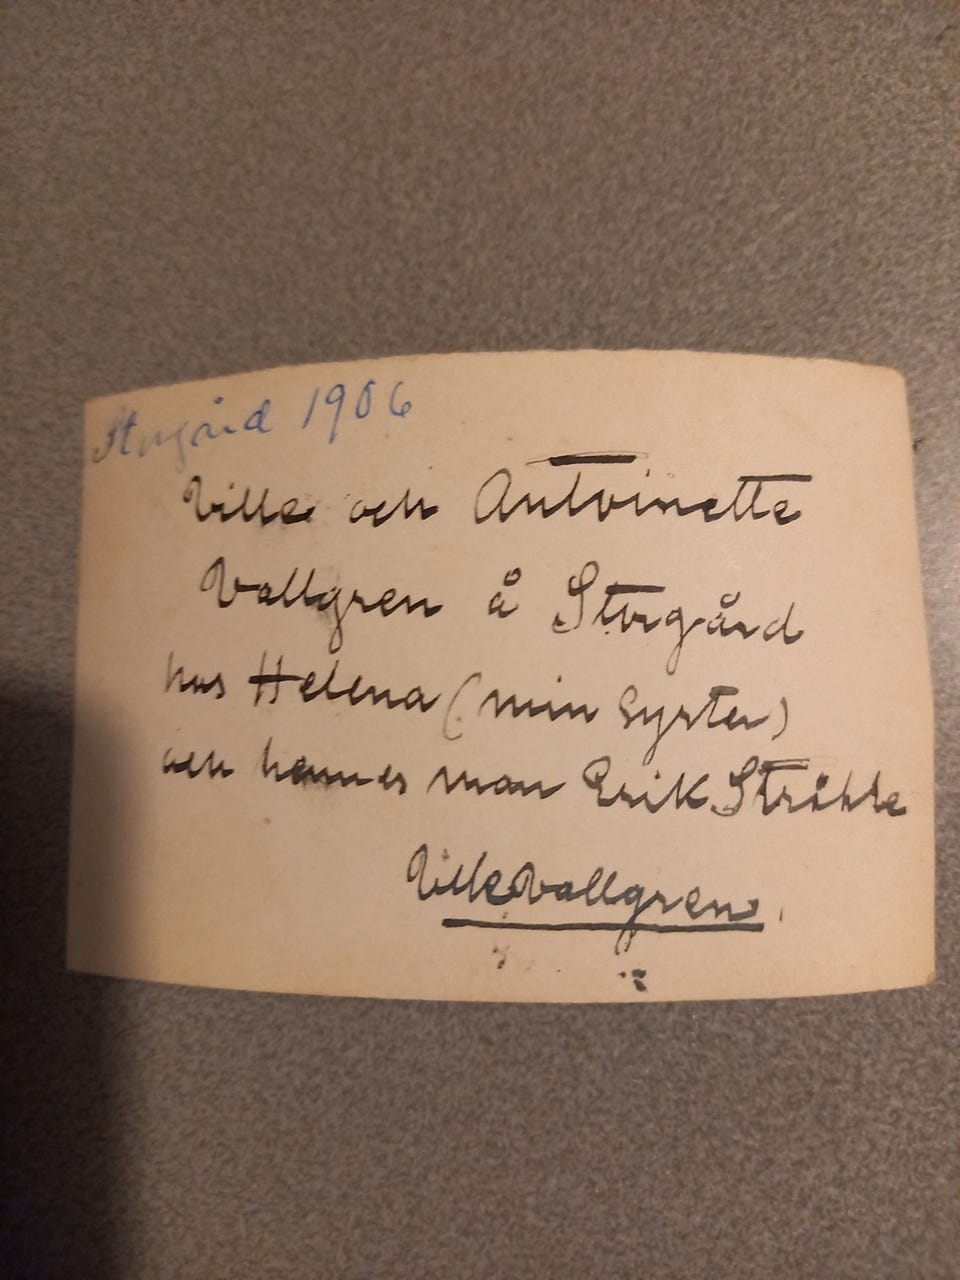 Storgård 1906
Ville och Antoinette
Vallgren å Storgård
hos Helena (min syster)
och hennes man Erik Stråhle
Ville Vallgren